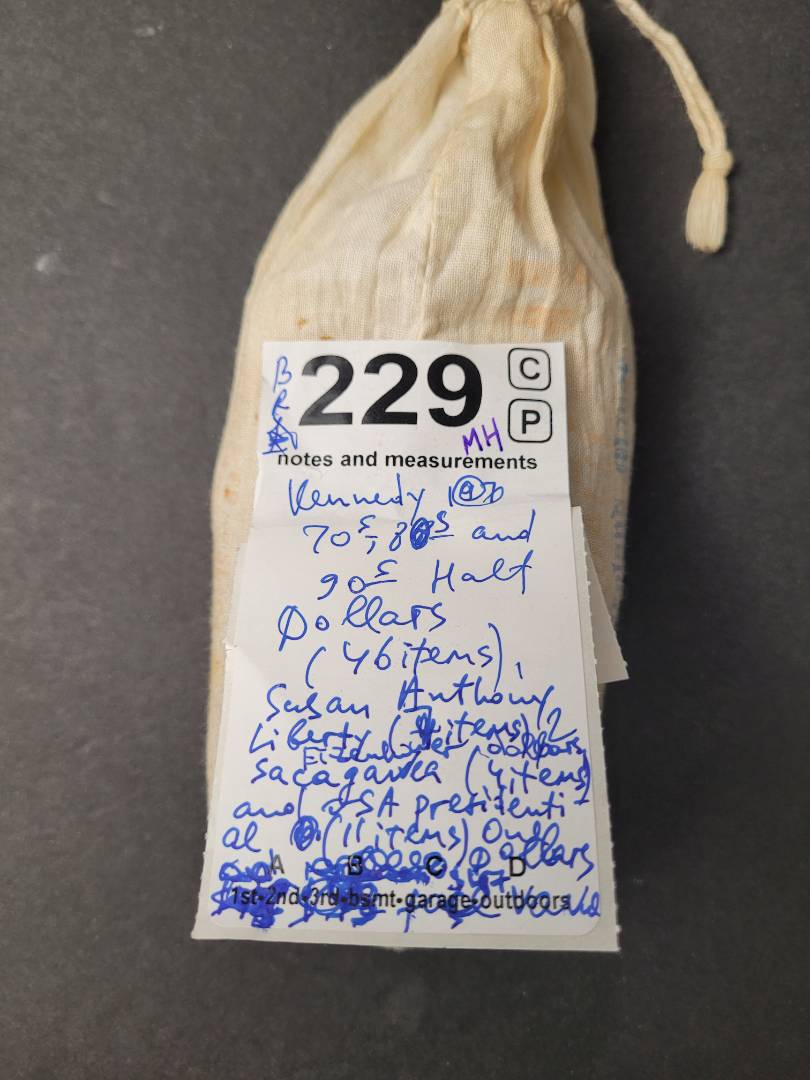 229
C
P
B
R
MH
notes and measurements
Kennedy
70s, 80s and
90s Half
Dollars
(46 items),
Susan Anthony
Liberty (4 items) 2
Eizenhower dollars,
sacagawea (4 items)
and USA presidenti-
al (11 items) One
A B C D Dollars
1st•2nd•3rd•bsmt•garage•outdoors